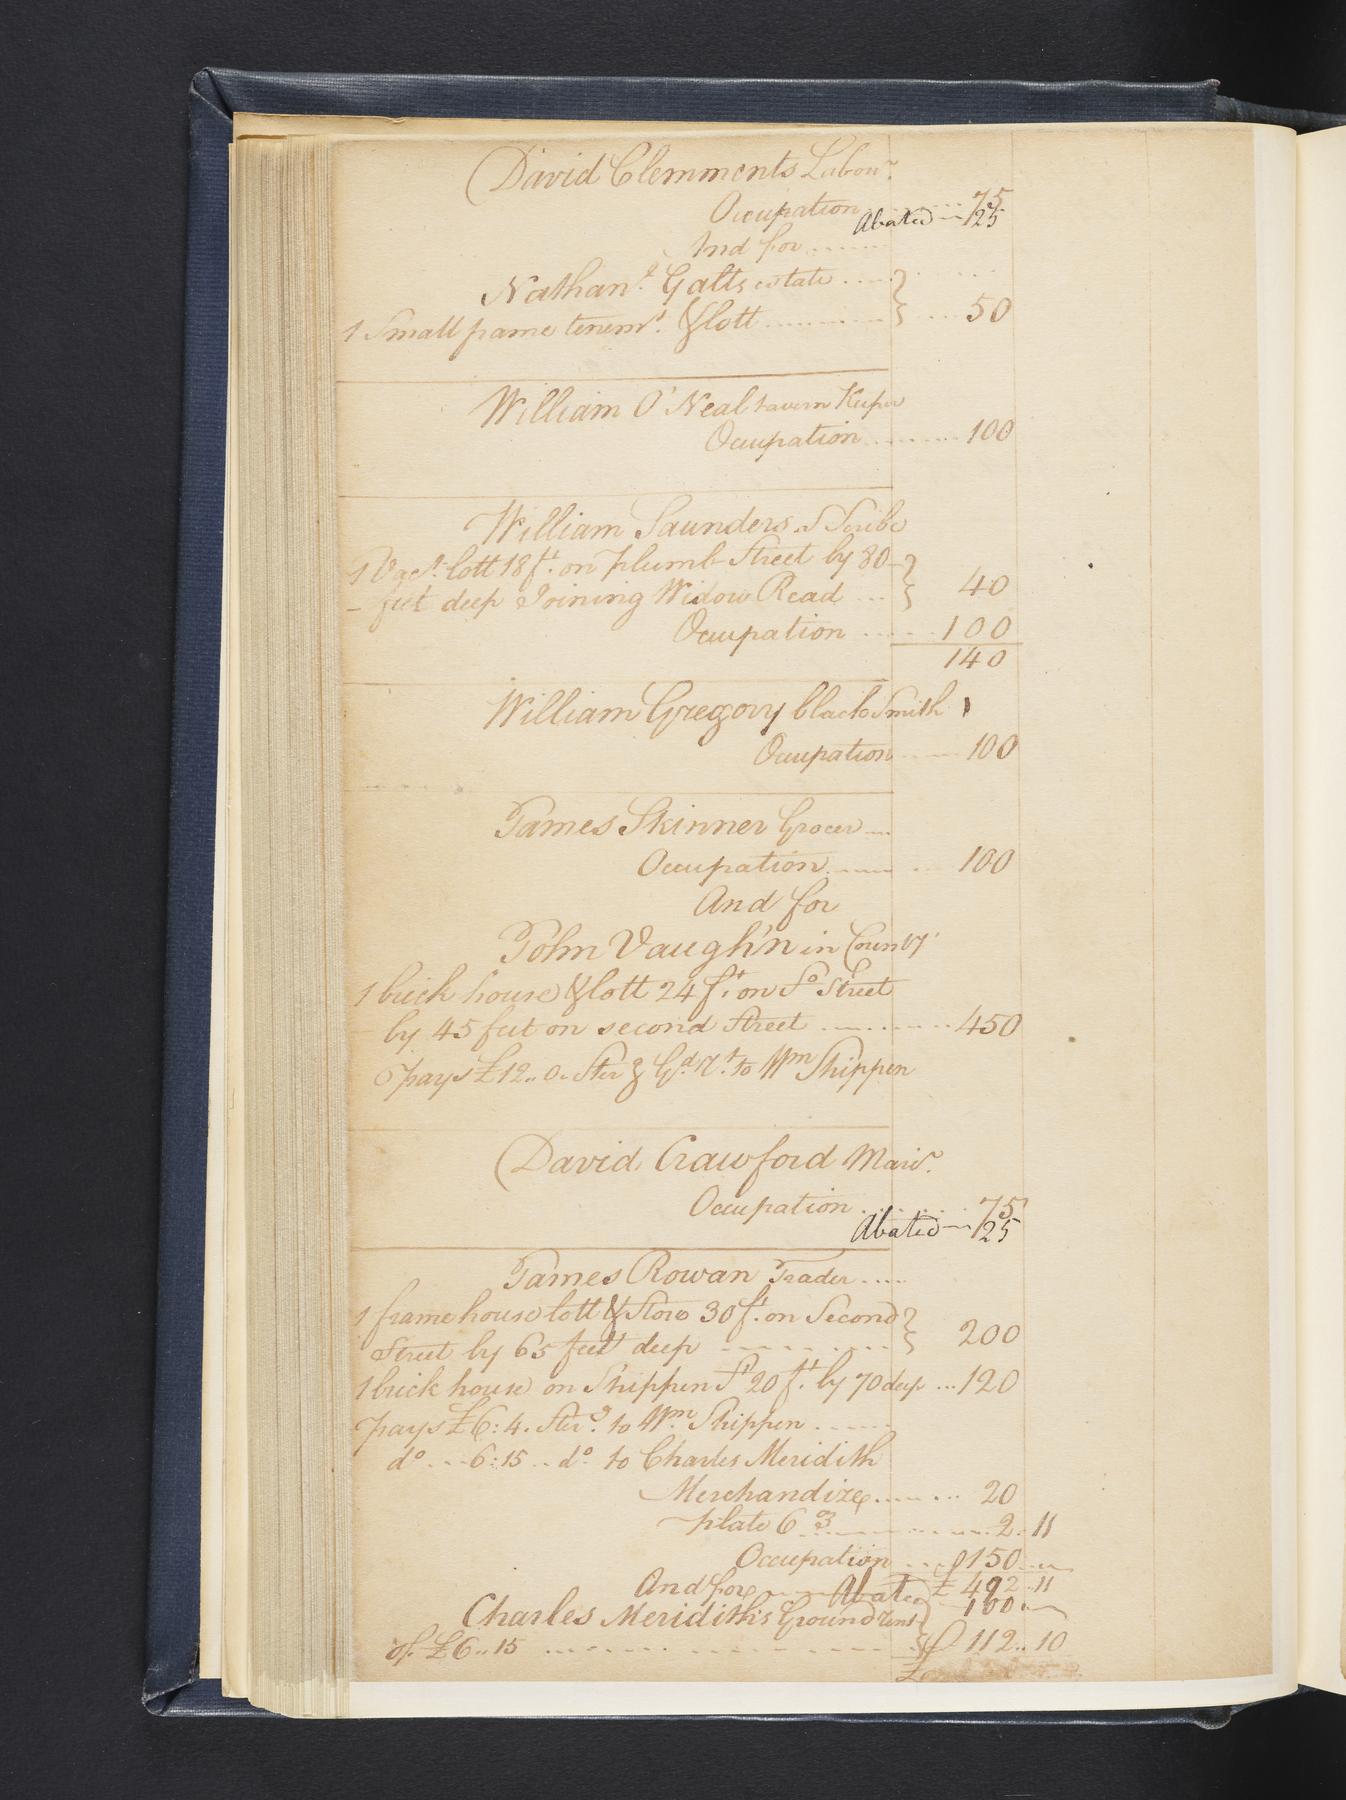 David Clemments Labour.
Occupation ..... 75
Abated — 25
And for ......
Nathan.l Galts estate ....
1 Small frame tenem.t & lott ........ 50
William O'Neal tavern Keeper
Occupation ........ 100
William Saunders Scribe
1 Vac.t lott 18 f.t on plumb Street by 80
feet deep Joining Widow Read ... 40
Occupation ..... 100
140
William Gregory black Smith
Occupation ..... 100
James Skinner Grocer ....
Occupation ..... 100
And for
John Vaugh'n in County
1 brick house & lott 24 f.t on So Street
by 45 feet on second Street ........ 450
pays £12.. 0.. Ster.g G.d R.t to Wm Shippen
David Crawford Marir.
Occupation ..... 75
Abated — 25
James Rowan Trader .....
1 frame house lott & Store 30 f.t on Second
Street by 65 feet deep ........ 200
1 brick house on Shippen S.t 20 f.t by 70 deep ... 120
pays £6:4. Ster.g to Wm Shippen .....
do ... 6:15 .. do to Charles Meridith
Merchandize ....... 20
plate 6 ℥ ........ 2 .. 11
Occupation .... 150 ..
£ 492 .. 11
And for Abated 100 ..
Charles Meridith's Ground rent
of £6..15 ........ 112 .. 10
£